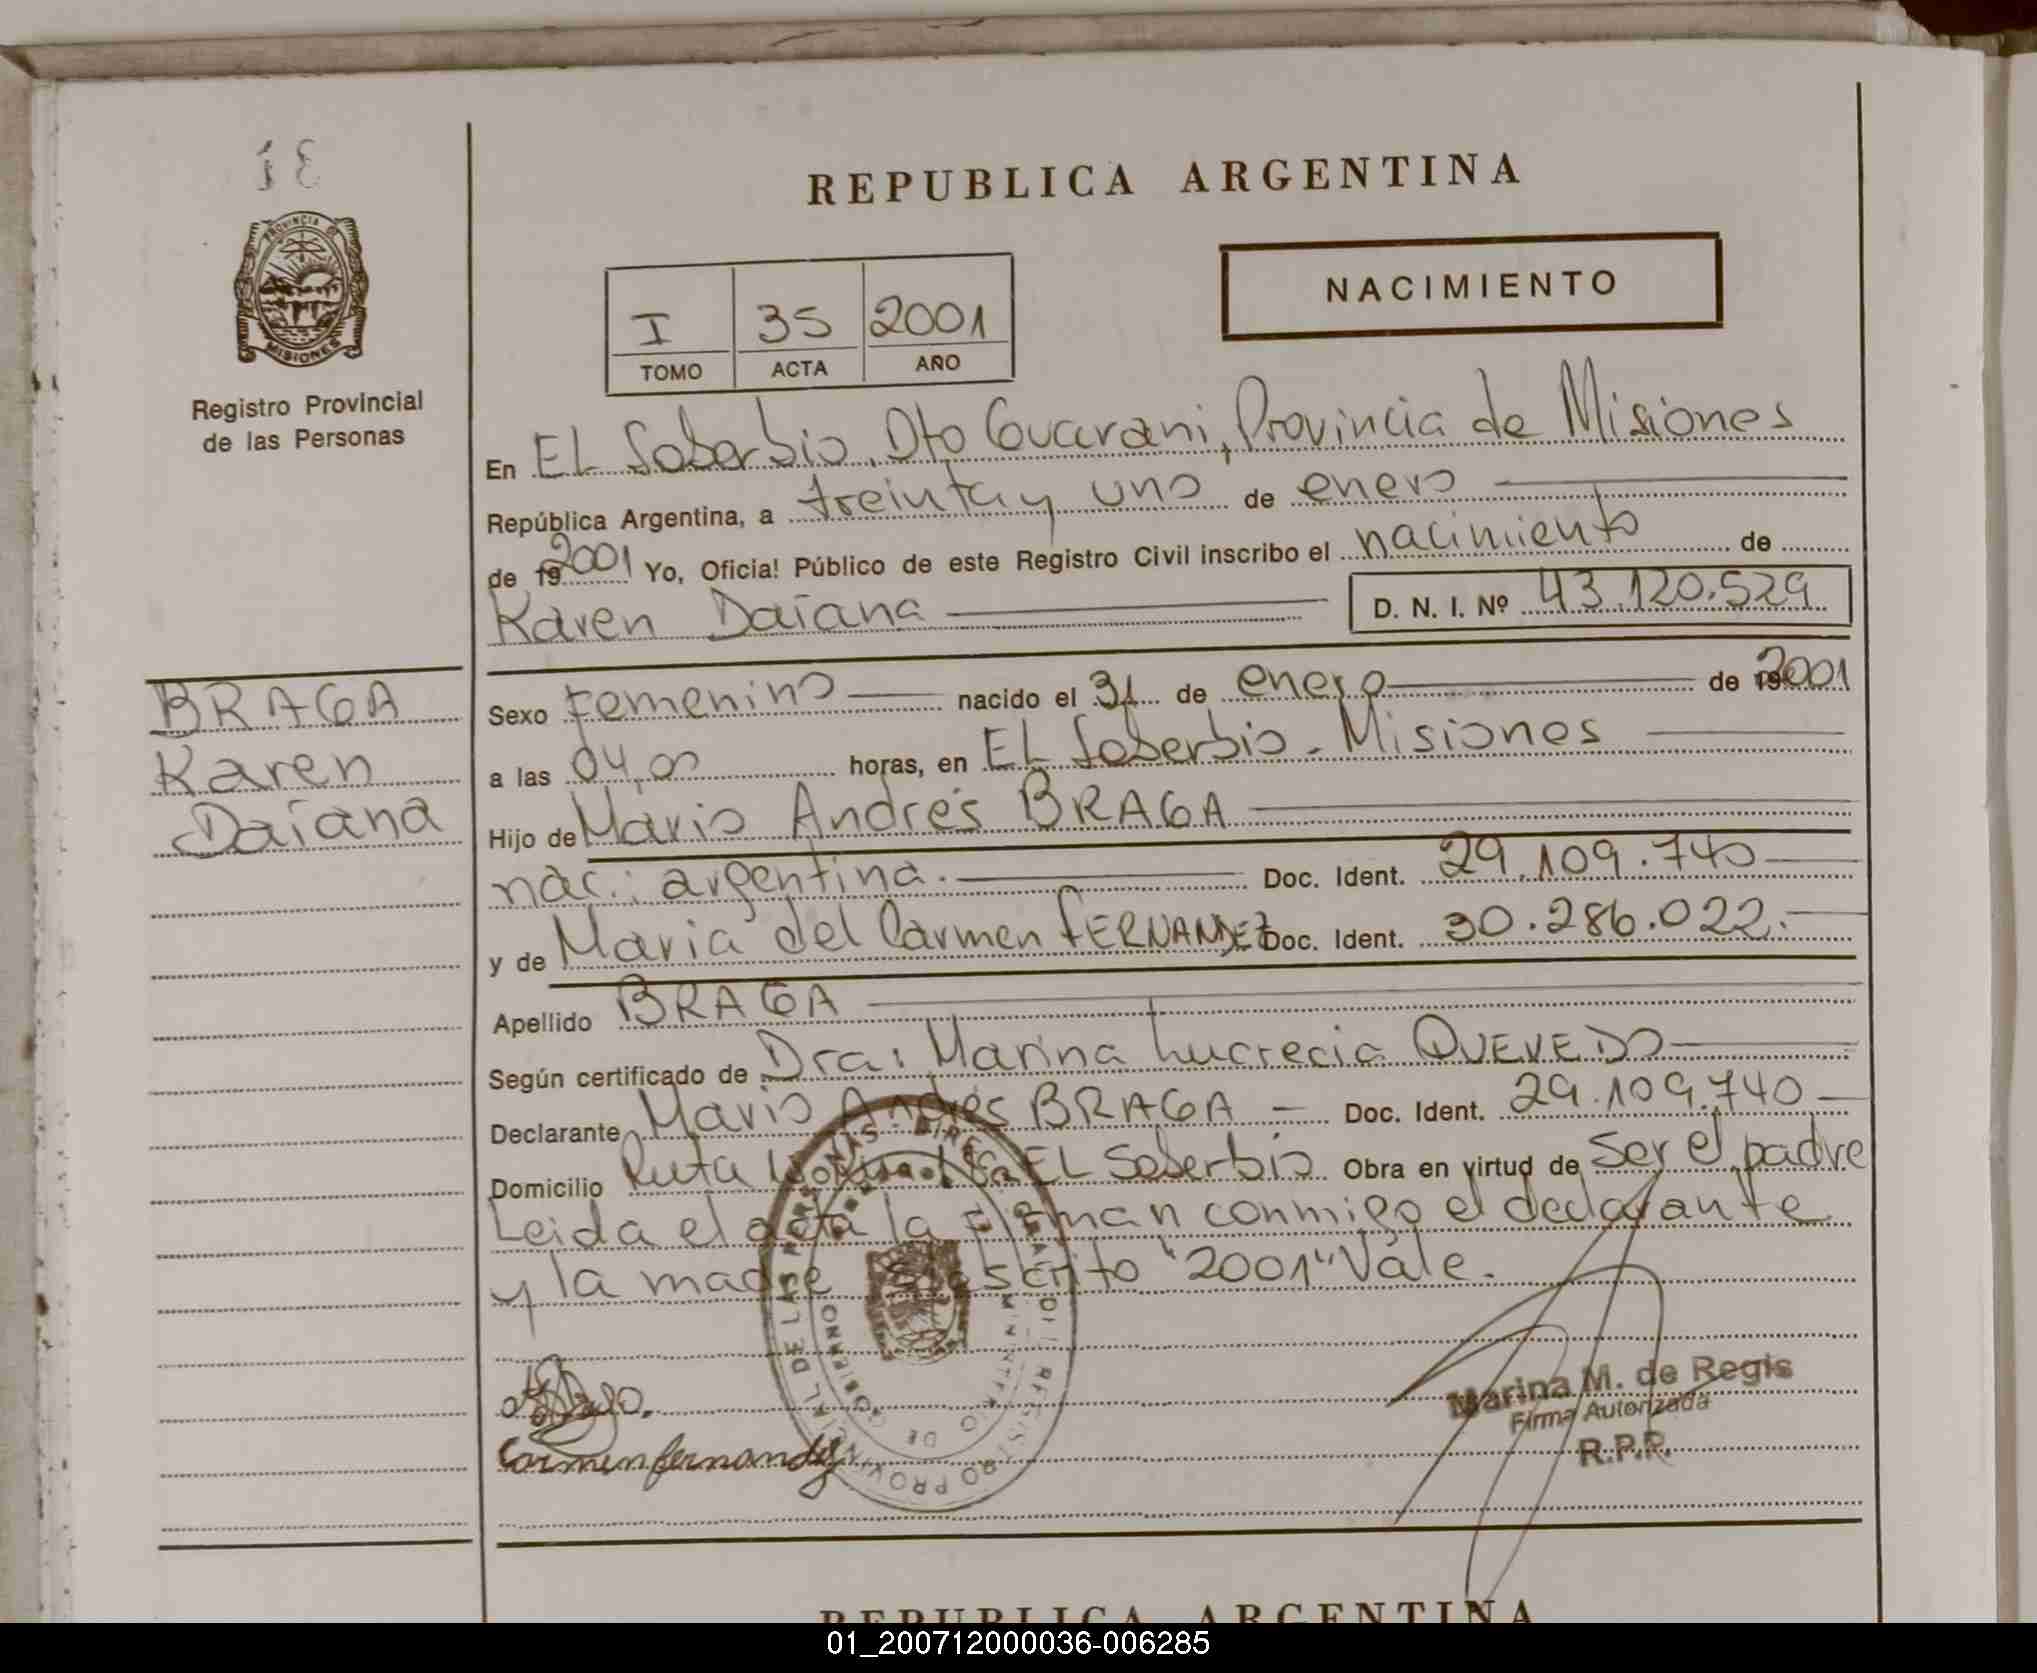 18
PROVINCIA DE
MISIONES
Registro Provincial
de las Personas
REPUBLICA ARGENTINA
NACIMIENTO
I 35 2001
TOMO ACTA AÑO
En EL Soberbio, Dto Guarani, Provincia de Misiones
República Argentina, a treinta y uno de enero
de 19 2001 Yo, Oficial Público de este Registro Civil inscribo el nacimiento de
Karen Daiana D. N. I. Nº 43.120.529
BRAGA
Karen
Daiana
Sexo Femenino nacido el 31 de enero de 19 2001
a las 04,00 horas, en EL Soberbio - Misiones
Hijo de Mario Andrés BRAGA
nac.: argentina. Doc. Ident. 29.109.740
y de Maria del Carmen FERNANDEZ Doc. Ident. 30.286.022.
Apellido BRAGA
Según certificado de Dra: Marina Lucrecia QUEVEDO
Declarante Mario Andrés BRAGA - Doc. Ident. 29.109.740
Domicilio Ruta EL Soberbio Obra en virtud de ser el padre
Leida el acta la firman conmigo el declarante
y la madre Sobescrito "2001" Vale.
Carmen fernandez
Marina M. de Regis
Firma Autorizada
R.P.R.
REGISTRO PROVINCIAL DE LAS PERSONAS
MINISTERIO DE GOBIERNO
REPUBLICA ARGENTINA
01_200712000036-006285